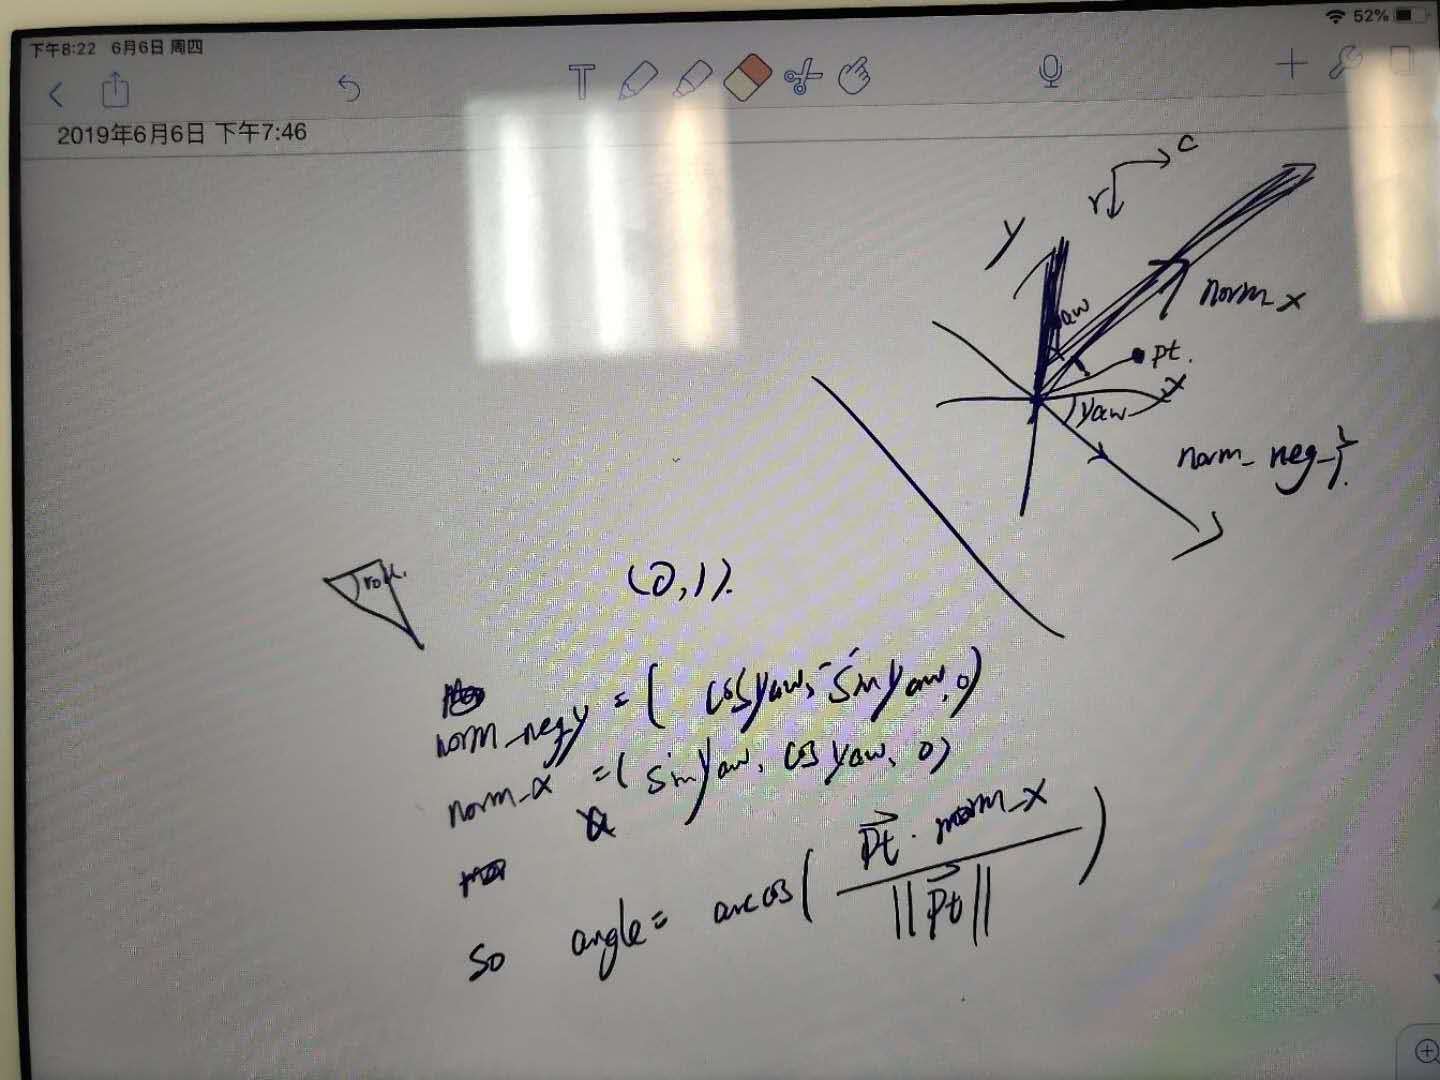 下午8:22 6月6日 周四
52%
2019年6月6日 下午7:46
T
c
r
y
norm_x
yaw
pt.
x
yaw
norm_neg_y.
(0,1).
norm_negy = ( cosyaw, -sinyaw, 0)
norm_x =( sinyaw, cosyaw, 0)
so angle= arccos( pt · norm_x / ||pt|| )